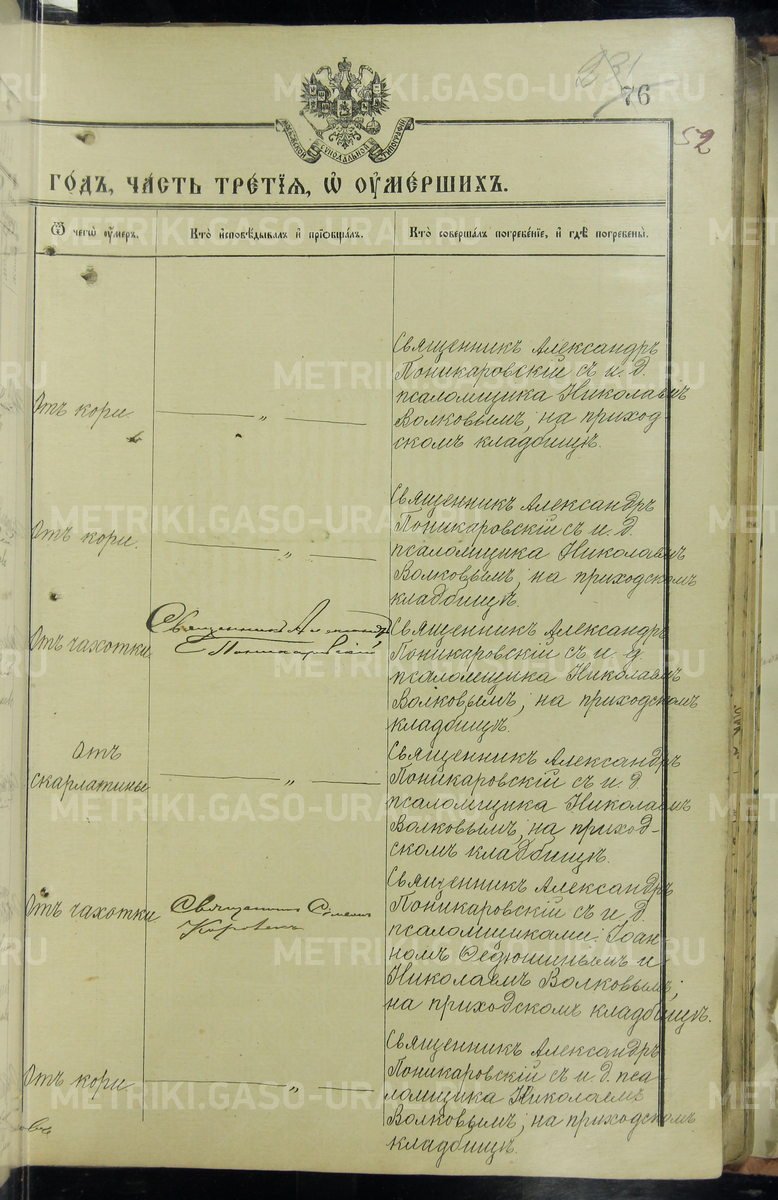 231
76
52
МОСКОВСКОЙ СѴНОДАЛЬНОЙ ТИПОГРАФІИ
ГО́ДЪ, ЧА́СТЬ ТРЕ́ТІѦ, Ѡ҆ ОУ҆МЕ́РШИХЪ.
Ѿ чегѡ̀ оу҆́меръ.
Кто̀ и҆сповѣ́дывалъ и҆ прїѡбща́лъ.
Кто̀ соверша́лъ погребе́нїе, и҆ гдѣ̀ погребены̀.
Отъ кори.
— „ —
Священникъ Александръ
Поникаровскій съ и. д.
псаломщика Николаемъ
Волковымъ, на приход-
скомъ кладбищѣ.
Отъ кори.
— „ —
Священникъ Александръ
Поникаровскій съ и. д.
псаломщика Николаемъ
Волковымъ, на приходскомъ
кладбищѣ.
Отъ чахотки
Священникъ Александръ
Поникаровскій
Священникъ Александръ
Поникаровскій съ и. д.
псаломщика Николаемъ
Волковымъ, на приходскомъ
кладбищѣ.
Отъ
скарлатины
— „ —
Священникъ Александръ
Поникаровскій съ и. д
псаломщика Николаемъ
Волковымъ, на приход-
скомъ кладбищѣ.
Отъ чахотки
Священникъ Симеонъ
Священникъ Александръ
Поникаровскій съ и. д.
псаломщиками: Іоан-
номъ Ѳедюшинымъ и
Николаемъ Волковымъ,
на приходскомъ кладбищѣ.
Отъ кори
— „ —
Священникъ Александръ
Поникаровскій съ и. д. пса-
ломщика Николаемъ
Волковымъ, на приходскомъ
кладбищѣ.
METRIKI.GASO-URAL.RU